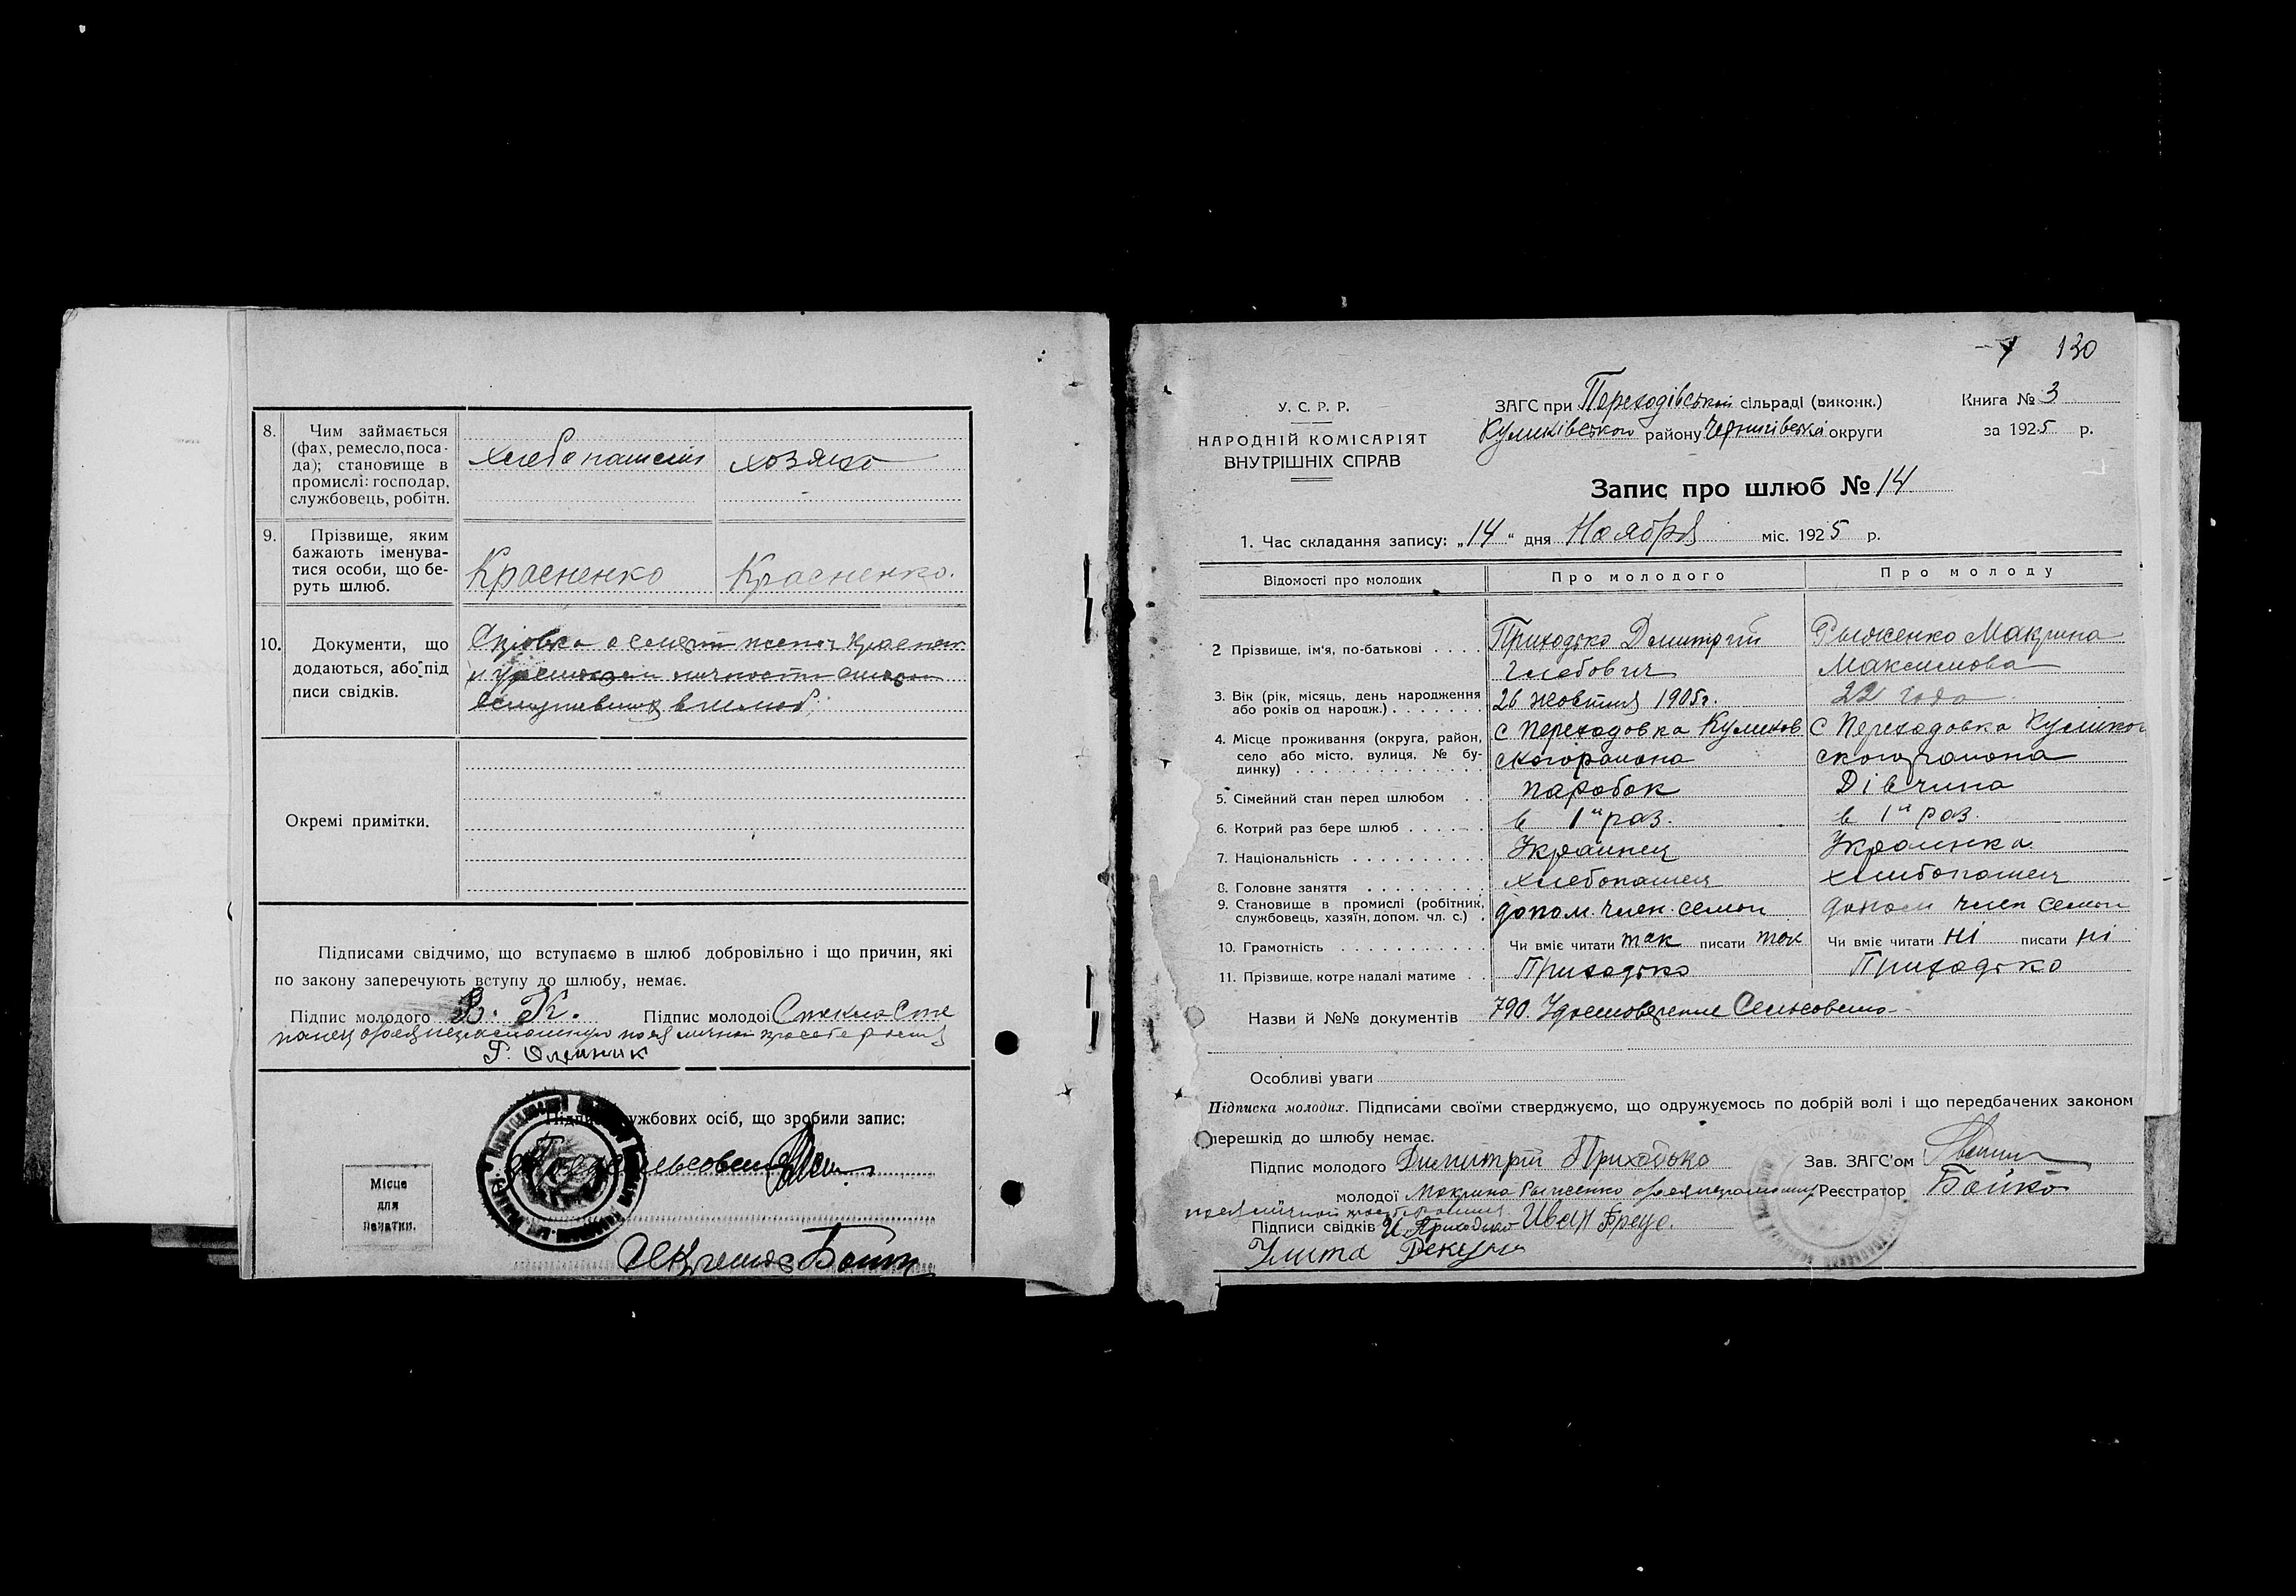 8. Чим займається
(фах, ремесло, поса-
да); становище в
промислі: господар,
службовець, робітн.
хозяйка
9. Прізвище, яким
бажають іменува-
тися особи, що бе-
руть шлюб.
Красненко Красненко.
10. Документи, що
додаються, або під
писи свідків.
Окремі примітки.
Підписами свідчимо, що вступаємо в шлюб добровільно і що причин, які
по закону заперечують вступу до шлюбу, немає.
Підпис молодого В. К. Підпис молодої
Г. Олейник
службових осіб, що зробили запис:
Місце
для
печатки.
130
У. С. Р. Р.
НАРОДНІЙ КОМІСАРІЯТ
ВНУТРІШНІХ СПРАВ
ЗАГС при Переходівській сільраді (виконк.)
Куликівського району Чернигівської округи
Книга № 3
за 1925 р.
Запис про шлюб № 14
1. Час складання запису: „14“ дня Ноября міс. 1925 р.
Відомості про молодих Про молодого Про молоду
2 Прізвище, ім'я, по-батькові . . . . Приходько Дмитрий Рыженко Макрина
Глебович Максимова
3. Вік (рік, місяць, день народження
або років од народж.) . . . . . . . 26 жовтня 1905г. 22 года
4. Місце проживання (округа, район,
село або місто, вулиця, № бу-
динку) . . . . . . . . . . . . . .
с Переходовка Куликов с Переходовка Куликов
ского района ского района
5. Сімейний стан перед шлюбом . . паробок Дівчина
6. Котрий раз бере шлюб . . . . . . в 1й раз. в 1й раз.
7. Національність . . . . . . . . . . Украинец Украинка
8. Головне заняття . . . . . . . . . хлебопашец хлибопашец
9. Становище в промислі (робітник,
службовець, хазяїн, допом. чл. с.) . допом. член. семьи допом член семьи
10. Грамотність . . . . . . . . . . . Чи вміє читати так писати так Чи вміє читати ні писати ні
11. Прізвище, котре надалі матиме . . Приходько Приходько
Назви й №№ документів 790. Удостоверение Сельсовета
Особливі уваги
Підписка молодих. Підписами своїми стверджуємо, що одружуємось по добрій волі і що передбачених законом
перешкід до шлюбу немає.
Підпис молодого Димитрій Приходько Зав. ЗАГС'ом
молодої Макрина Рыженко Реєстратор Бойко
Підписи свідків И Приходько Иван
Улита